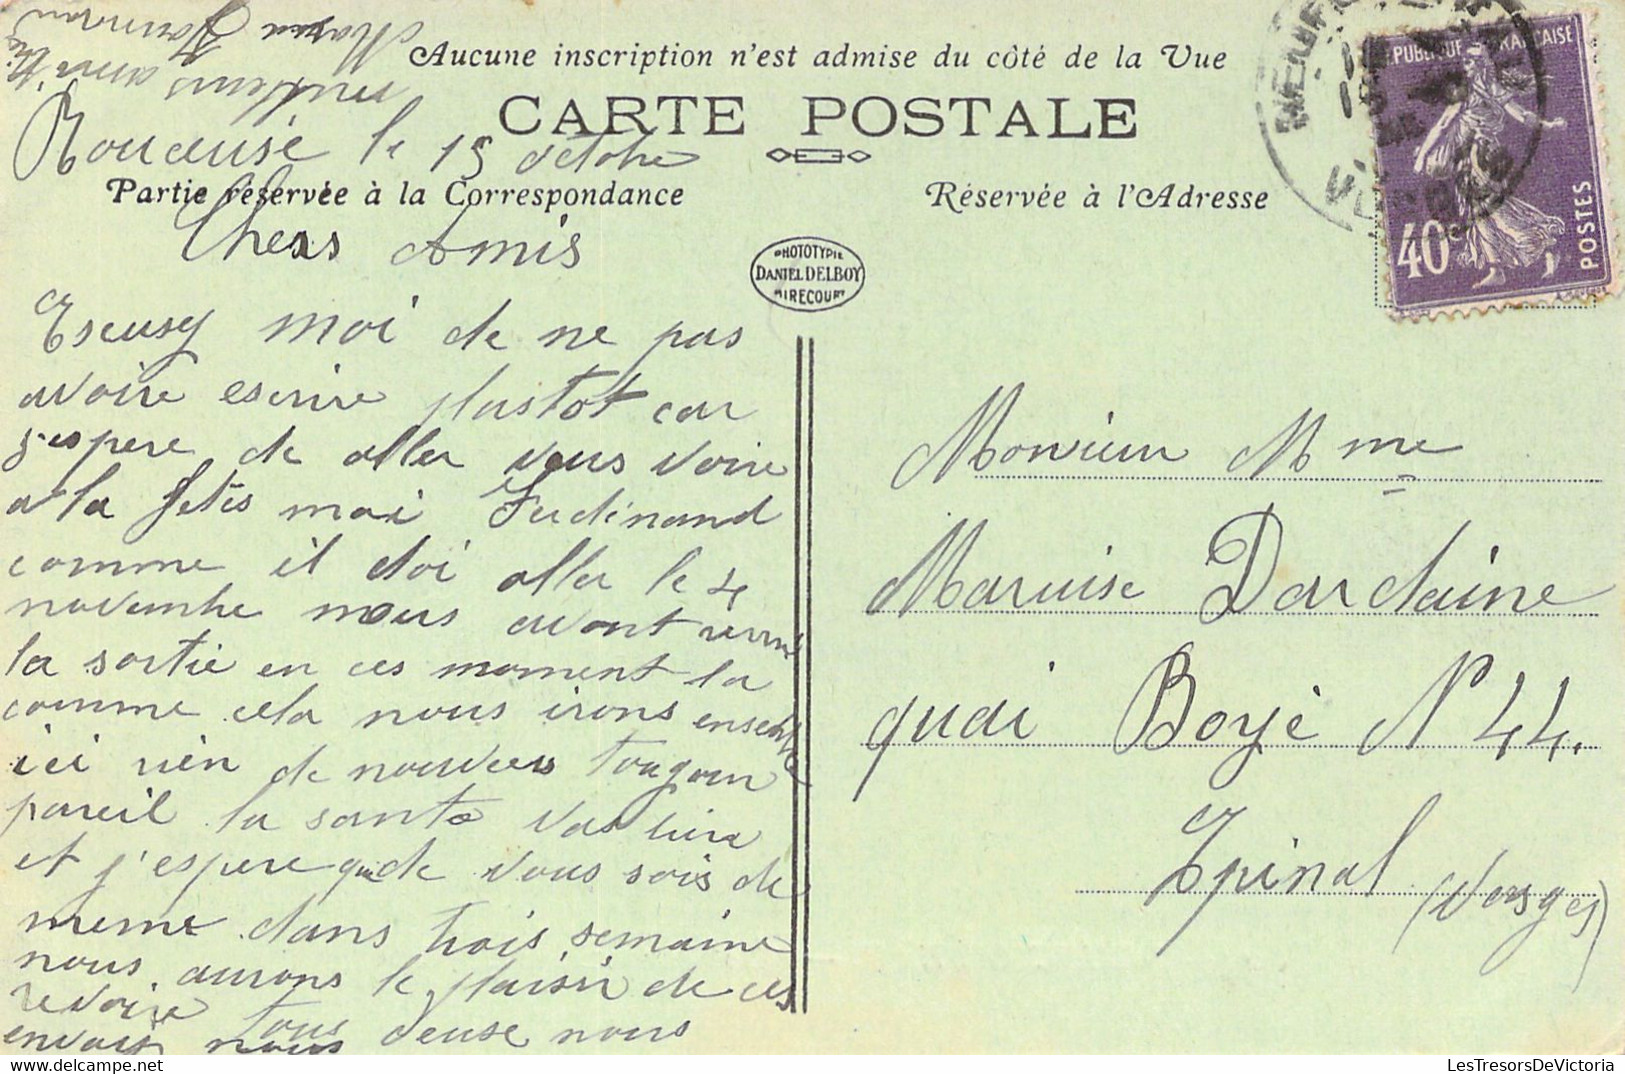 Aucune inscription n'est admise du côté de la Vue
CARTE POSTALE
Partie réservée à la Correspondance
Réservée à l'Adresse
PHOTOTYPIE
DANIEL DELBOY
MIRECOURT
RÉPUBLIQUE FRANÇAISE
40
POSTES
le 15 octobre
Chers Amis
Escusy moi de ne pas
avoire escrire plustot car
j'espere de aller vous voire
a la fetes moi Ferdinand
comme il doi aller le 4
novembre nous avont
la sortie en ces moment la
comme cela nous irons ensemble
ici rien de nouveus tougour
pareil la santé vas bien
et j'espere que de vous sois de
meme dans trois semaine
nous aurons le plaisir de ces
revoire tous deuse nous
envoir nous
meilleurs amitie
Maria
Monsieur Mme
Maruise Dardaine
quai Boyé N° 44.
Epinal (Vosges)
LesTresorsDeVictoria